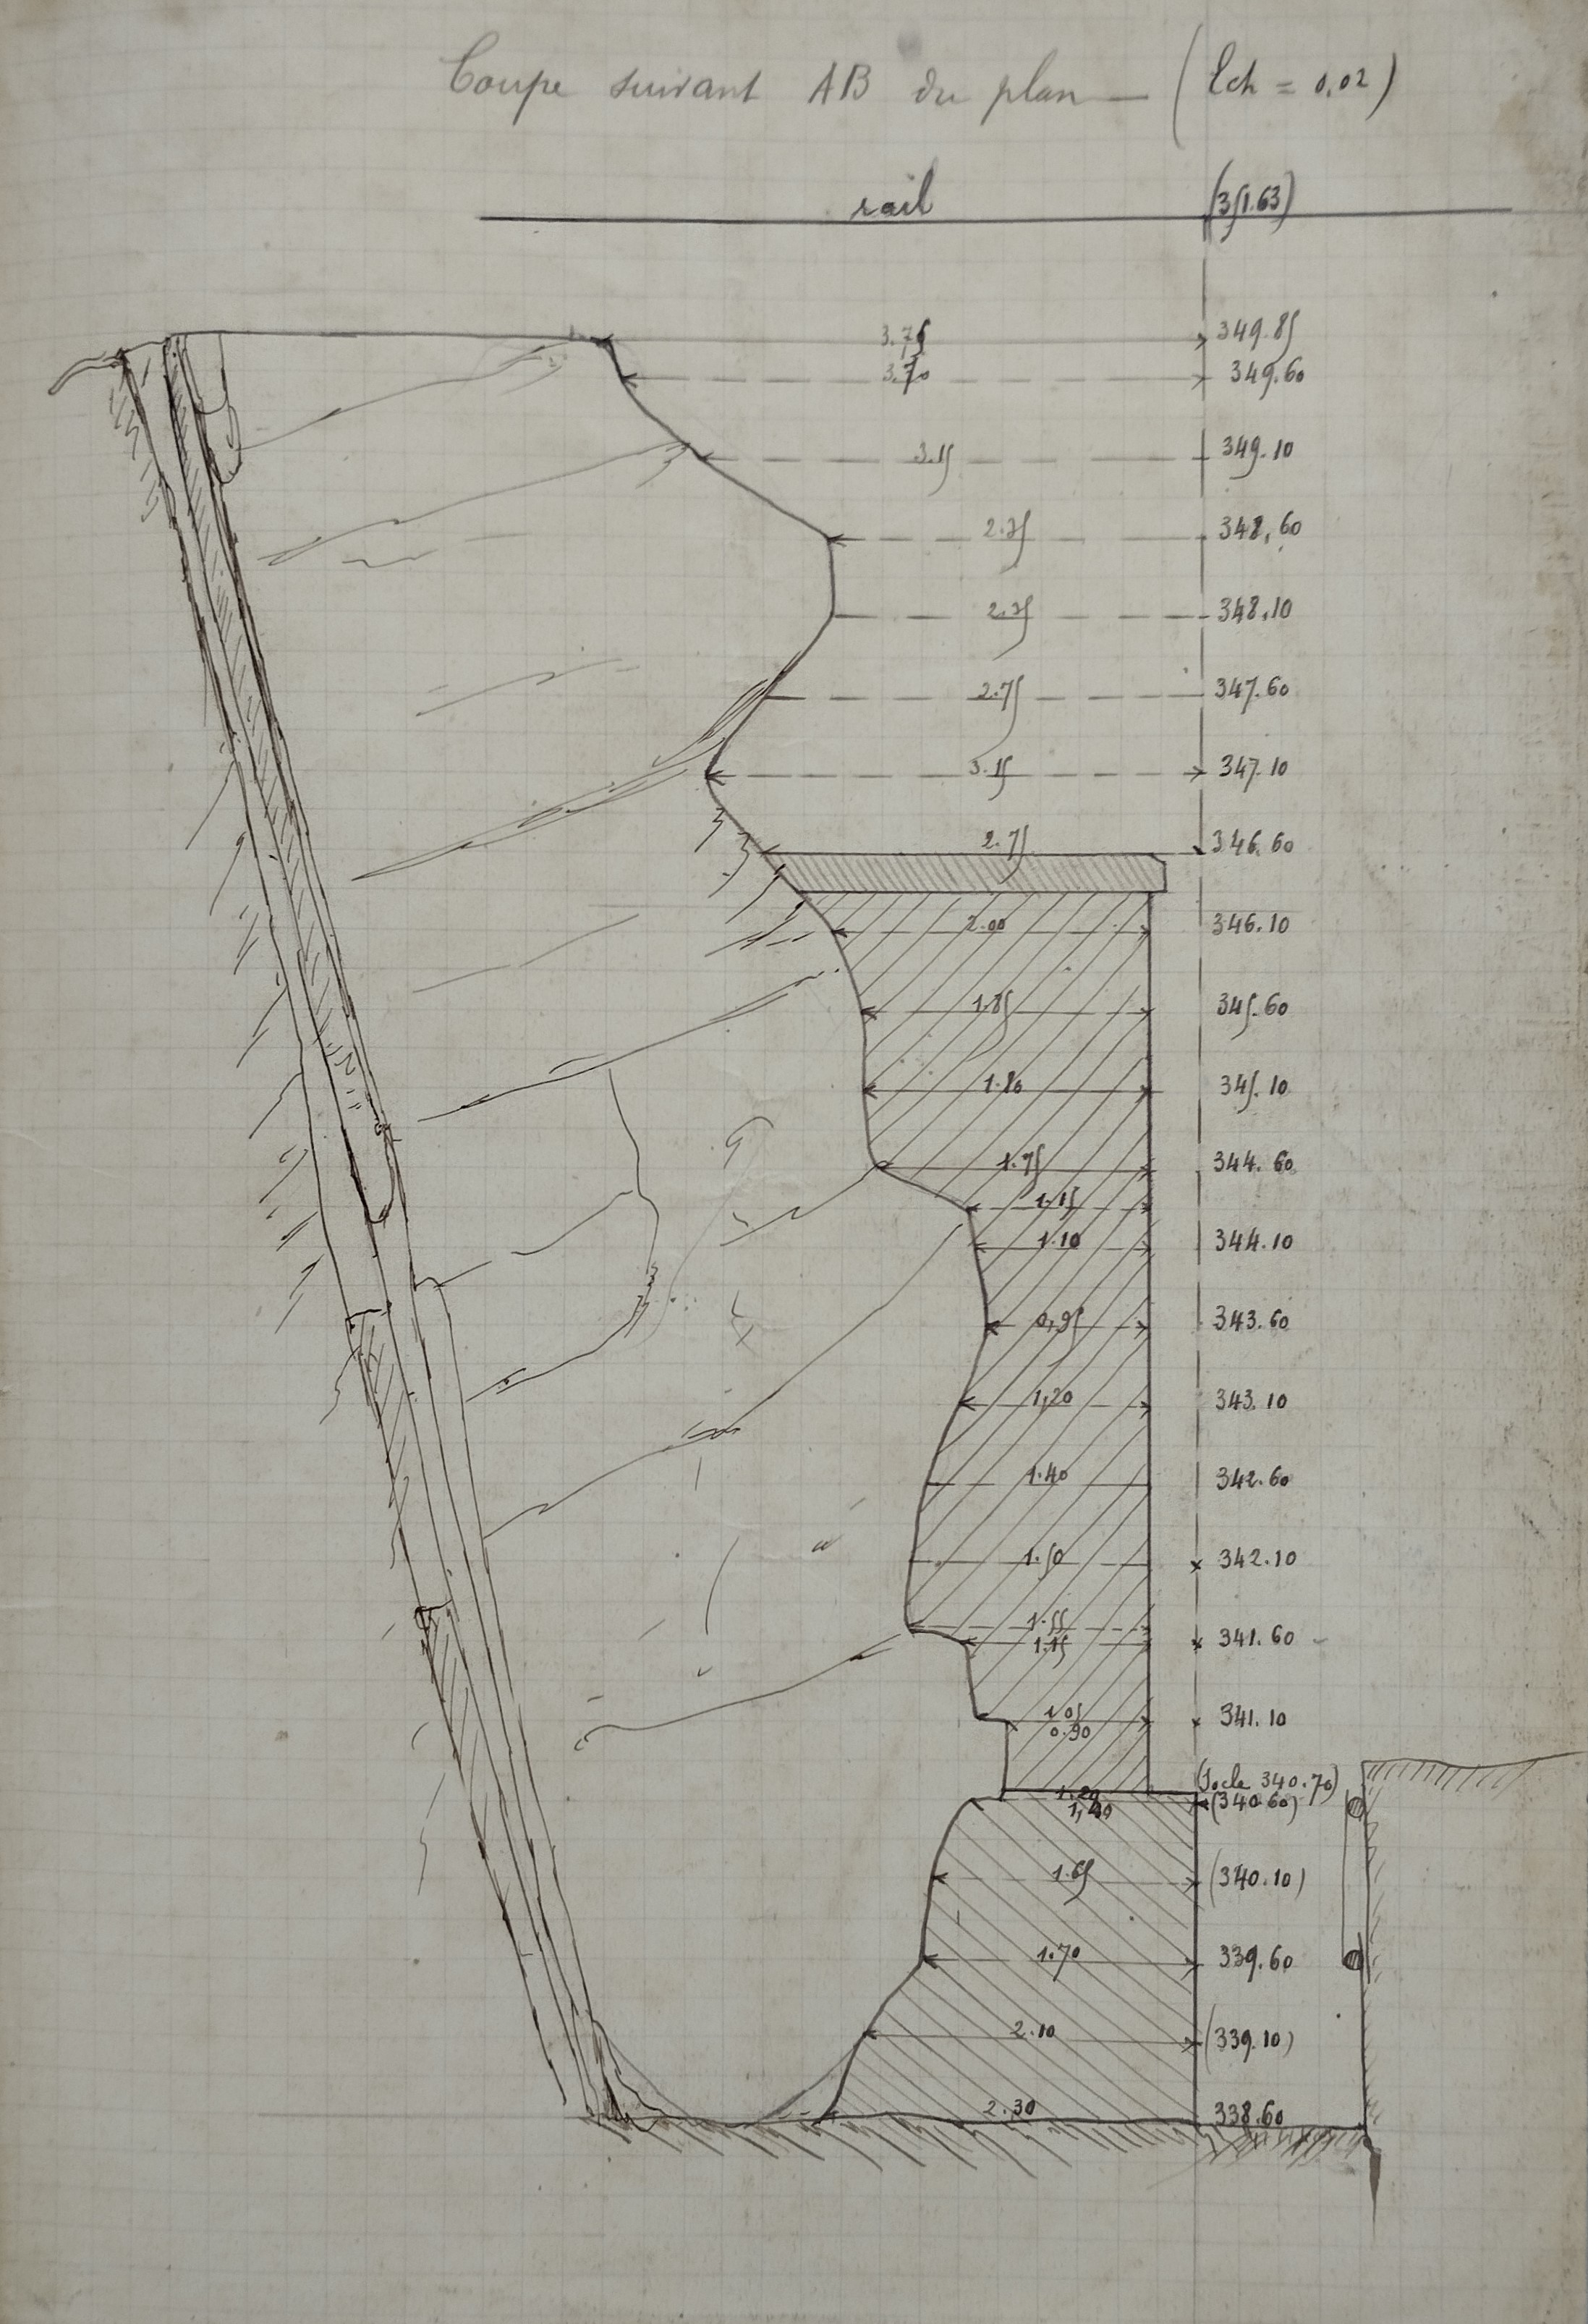 Coupe suivant AB du plan — (Ech = 0,02)
rail (351.63)
3.75 349.85
3.70 349.60
3.15 349.10
2.35 348,60
2.35 348,10
2.75 347.60
3.15 347.10
2.75 346.60
2.00 346.10
1.85 345.60
1.80 345.10
1.75 344.60
1.15
1.10 344.10
0,95 343.60
1,20 343.10
1.40 342.60
1.50 342.10
1.55
1.15 341.60
1.05 341.10
0.90
(Socle 340.70)
1.20 (340.60)
1,40
1.65 (340.10)
1.70 339.60
2.10 (339.10)
2.30 338.60